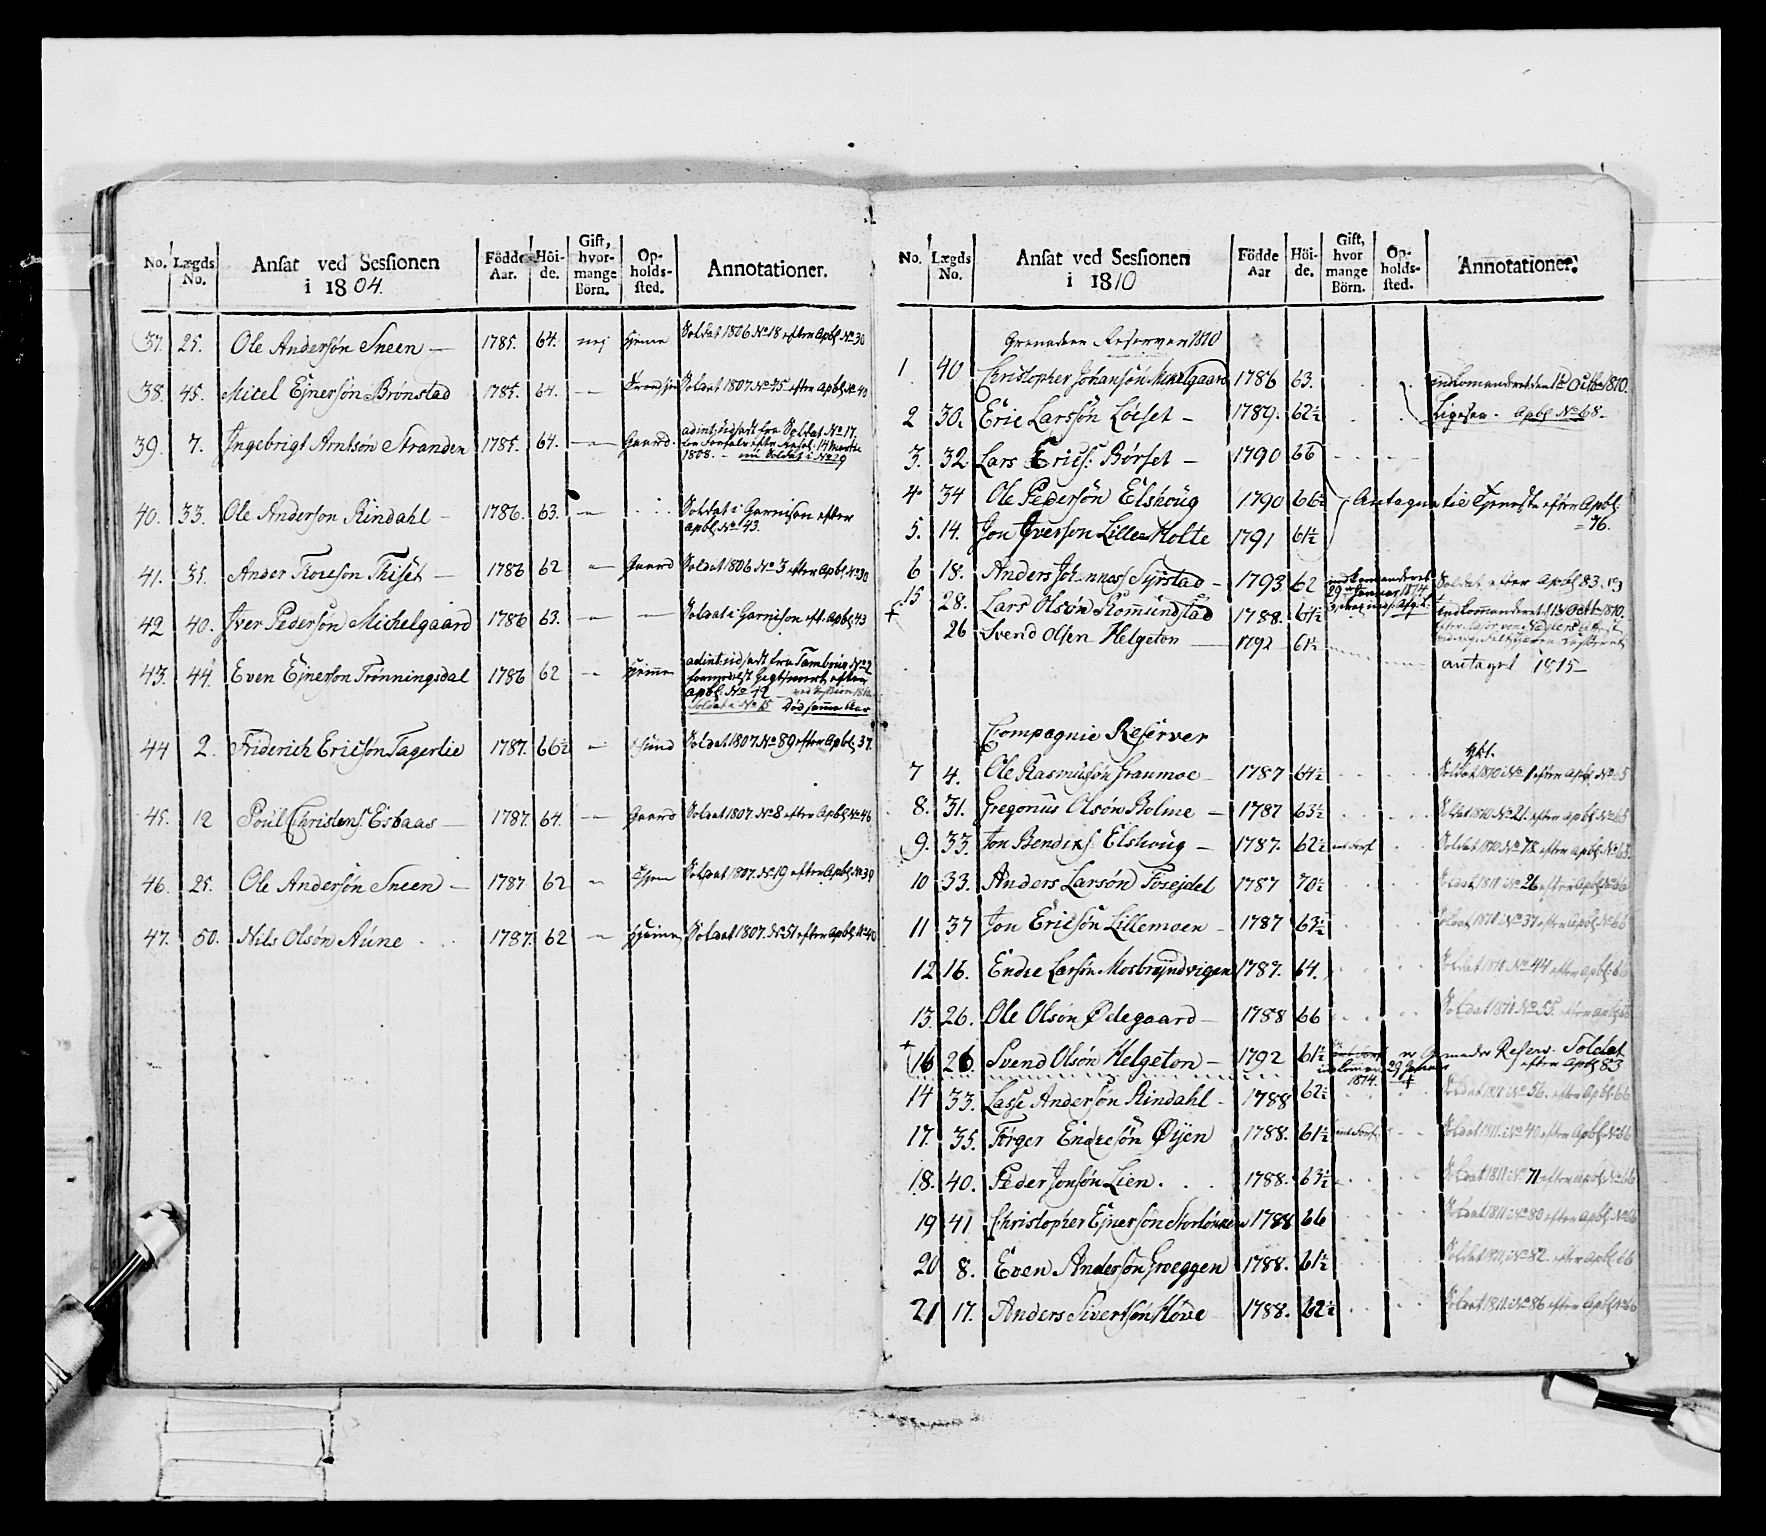 No. | Lægds No. | Ansat ved Sessionen i 1804. | Födde Aar. | Höide. | Gift, hvormange Börn. | Opholdssted. | Annotationer.
37. 25. Ole Andersön Sneen — 1785. 64. nej hjeme Soldat 1806 No 18 efter Apbl No 30
38. 45. Mikel Ejnersön Brönstad 1785. 64. — Soldat 1807 No 45 efter Apbl No 40
39. 7. Ingebrigt Arntsön Stranden 1785. 64. — Gaard. adint. udsadt fra Soldat No 17,
14 Martii
1808. — nu Soldat i No 19
40. 33. Ole Anderson Rindahl — 1786. 63. — Soldat i Garnison efter
Apbl No 43.
41. 35. Ander Toreson Thiset — 1786 62 — Gaard Soldat 1806 No 3 efter Apbl No 30
42 40. Iver Pederson Mickelgaard 1786 63. — — Soldat i Garnison eft. Apbl. 43
43. 44. Even Ejnerson Trönningsdal 1786 62 — hjemme adint. udsadt fra Tambour No 2
efter
Apbl. No 42 — ved Session 1810
Soldat i No 15 Död samme Aar
44 2. Friderich Ericsön Fagerlie 1787. 66½ — Sund Soldat 1807 No 89 efter Apbl. 37.
45. 12 Poul Christens. Esbaas — 1787. 64. — Gaard Soldat 1807. No 8 efter Apbl No 46
46. 25. Ole Andersön Sneen — 1787 62 — Hjem Soldat 1807. No 19 efter Apbl. No 39
47. 50. Nils Olsön Aune 1787. 62 — hjeme Soldat 1807. No 51 efter Apbl No 40
No. | Lægds No. | Ansat ved Sessionen i 1810 | Födde Aar | Höide. | Gift, hvor mange Börn. | Opholdssted. | Annotationer.
Grenadeer Reserver 1810
1. 40 Christopher Johansön Mikelgaard 1786 63. indkomanderet den 1de Octbr 1810.
2 30. Eric Larssön Löeset — 1789. 62½ Ligesaa. Apbl No 68.
3. 32 Lars Erics: Börset — 1790 66
4. 34 Ole Pedersön Elshoug 1790 66½ Antagen til Tjeneste efter Apbl.
= 76.
5. 14. Jon Iverson Lille-Holte 1791 61½
6 18. Anders Johanness Syrstad — 1793 62 indkomanderet Soldat efter Apbl 83. 13
29 Januar 1814
15 28. Lars Olsön Romundstad 1788. 64½ indkommanderet d 13 Octbr 1810.
26 Svend Olsen Helgeton — 1792 61½
antaget 1815
Compagnie Reserver
7 4. Ole Rasmusön Graumoe — 1787 64½ Soldat 1810 No 1 efter Apbl No 65
8. 31. Gregorius Olsön Bolme — 1787 63½ Soldat 1810 No 21. efter Apbl No 65
9. 33. Jon Bendixs. Elshoug — 1787. 62½ Soldat 1810 No 78 efter Apbl No 65.
10 33. Anders Larsön Fosejdel 1787 70½ Soldat 1811 No 26 efter Apbl No 66
11 37 Jon Ericsön Lillemoen — 1787 63½ Soldat 1811 No 37 efter Apbl No 66
12 16. Endre Larsön Mosbrÿndvigen 1787. 64. Soldat 1811 No 44 efter Apbl. 66
13. 26. Ole Olsön Ödegaard — 1788 66 Soldat 1811 No 55. efter Apbl 66
+ 16 26. Svend Olsön Helgeton — 1792 61½ er Grenadeer Reserv. Soldat
29 Januar efter Apbl 83
1814.
14 33. Lasse Andersön Rindahl — 1788 62½ Soldat 1811 No 56. efter Apbl. 66
17. 35. Törger Endresön Öÿen 1788. 61½ Soldat 1811. No 40 efter Apbl. No 66
18. 40. Peder Jonsön Lien. 1788. 63½ Soldat 1811 No 71 efter Apbl No 66
19 41. Christopher Ejnerson 1788 66 Soldat 1811 No 80 efter Apbl. No 66
20 8. Even Andersön Greggen 1788. 61½ Soldat 1811, No 82. efter Apbl. 66
21 17. Anders Sivertsön Höve 1788. 62½ Soldat 1811. No 86 efter Apbl No 66